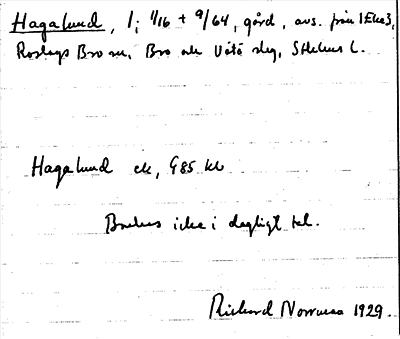 Hagalund, 1; 1/16 + 9/64, gård, avs. från 1 Eka 3,
Roslags Bro sn, Bro och Vätö slg, Sthlms l.
Hagalund ek, G85 kl
Brukas icke i dagligt tal.
Rickard Norrman 1929.